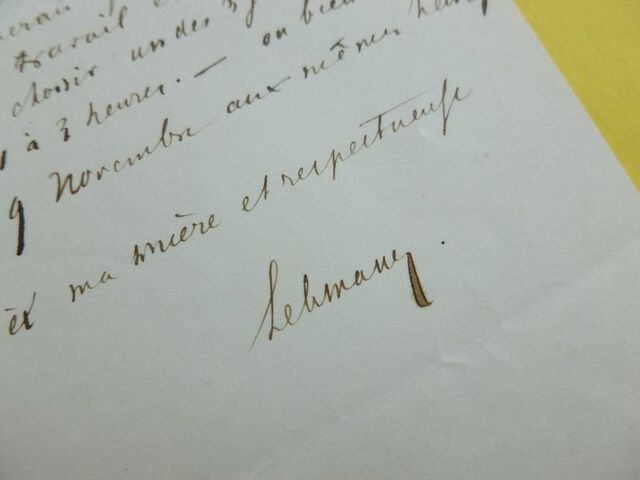 travail
choisir un des 3 j
1 à 3 heures. — ou bien
9 Novembre aux mêmes heures
ex ma sincère et respectueuse
Lehmann.